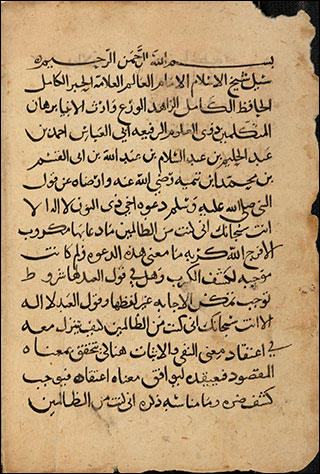 بسم الله الرحمن الرحيم
سئل شيخ الاسلام الامام العالم العلامة الحبر الكامل
الحافظ الكامل الزاهد الورع وارث الانبيا برهان
المتكلمين ذوي العلوم الرفيعه ابي العباس احمد بن
عبد الحليم بن عبد السلام بن عبد الله بن ابي القسم
بن محمد ابن تيميه رضي الله عنه وارضاه عن قول
النبي صلى الله عليه وسلم دعوه اخي ذي النون لا اله الا
انت سبحانك اني كنت من الظالمين ما دعا بها مكروب
الا فرج الله كربه ما معنى هذه الدعوه ولم كانت
موجبه لكشف الكرب وهل في قول العبد لها شروط
توجب الاجابه عند لفظها وقول العبد لا اله
الا انت سبحانك اني كنت من الظالمين كيف تنزل معه
في اعتقاد معنى النفي والاثبات تحقق بمعناه
المقصود فيعتقده ليوافق معناه اعتقاده فيوجب
كشف ضره وما مناسبه ذكره اني كنت من الظالمين